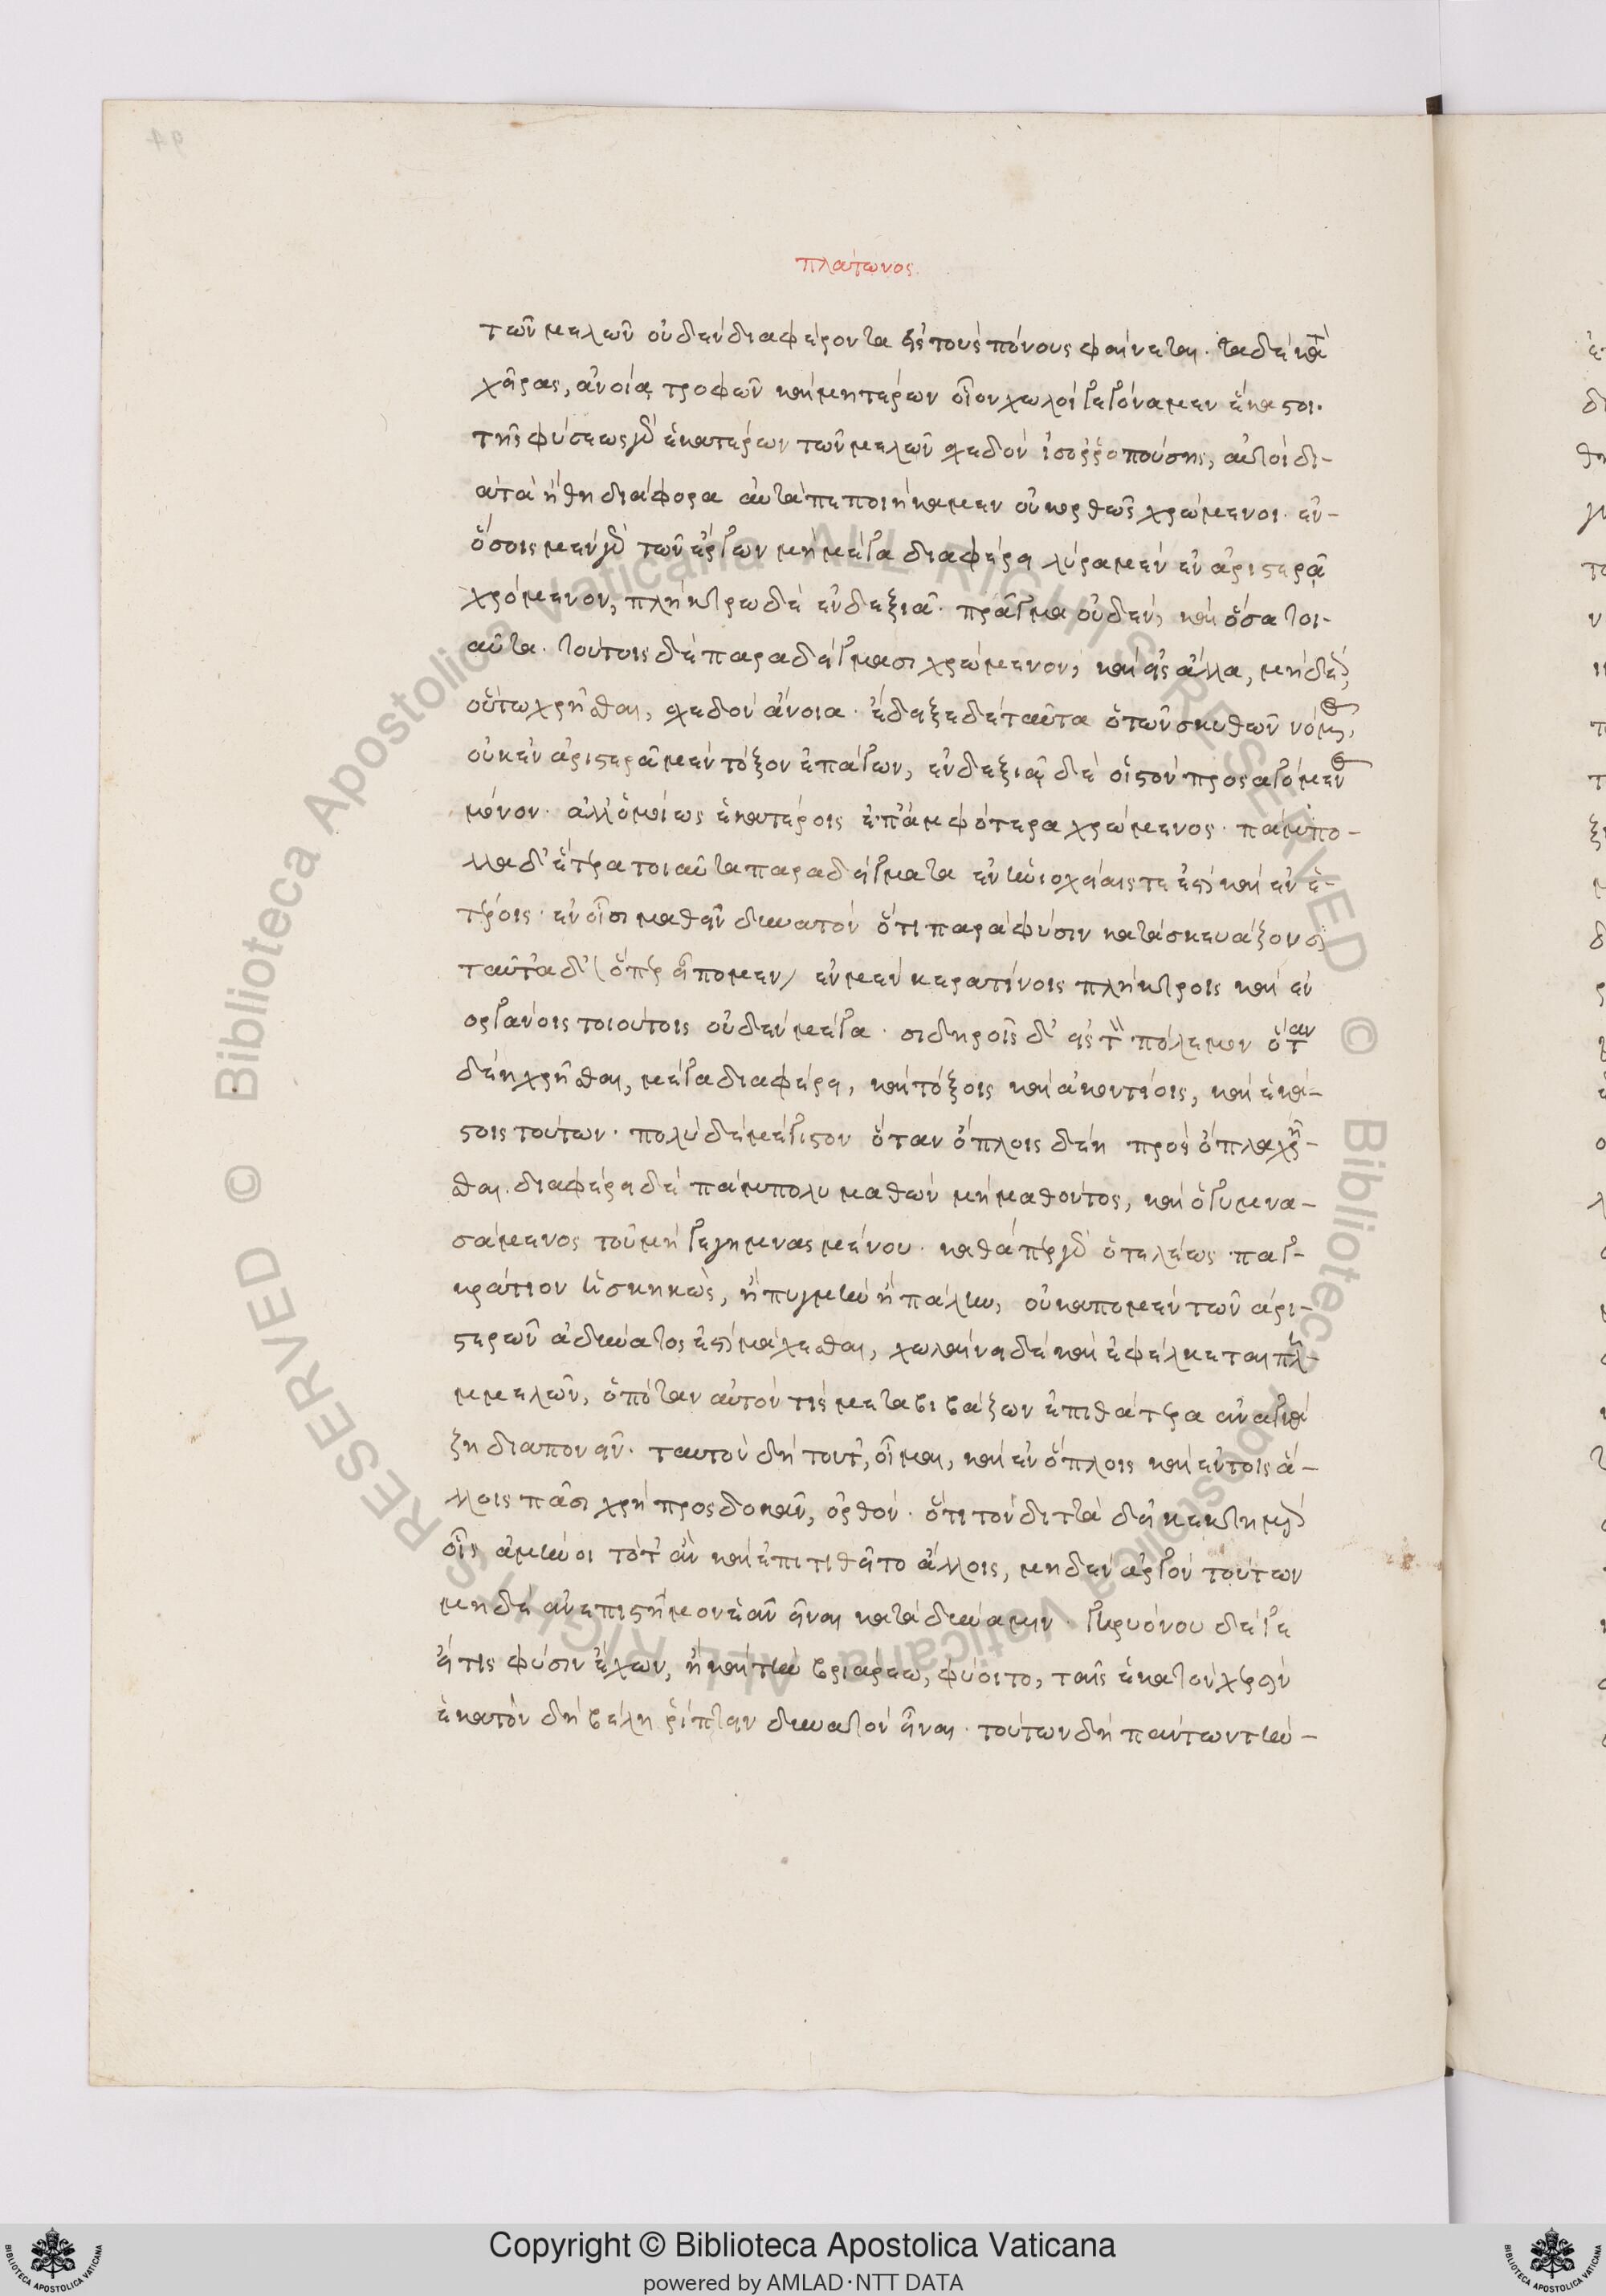 πλάτωνος
τῶν μελῶν οὐδὲν διαφέροντα εἰς τοὺς πόνους φαίνεται. τὰ δὲ κατὰ
χεῖρας, ἀνοίᾳ τροφῶν καὶ μητέρων οἷον χωλοὶ γεγόναμεν ἕκαστοι.
τῆς φύσεως γὰρ ἑκατέρων τῶν μελῶν σχεδὸν ἰσορροπούσης, αὐτοὶ δι-
ὰ τὰ ἤθη διάφορα αὐτὰ πεποιήκαμεν οὐκ ὀρθῶς χρώμενοι. ἐν
ὅσοις μὲν γὰρ τῶν ἔργων μὴ μέγα διαφέρει λύρα μὲν ἐν ἀριστερᾷ
χρόμενον, πλήκτρω δὲ ἐν δεξιᾶ. πρᾶγμα οὐδὲν, καὶ ὅσα τοι-
αῦτα. τούτοις δὲ παραδείγμασι χρώμενον, καὶ εἰς ἄλλα, μὴ δέον
οὕτω χρῆσθαι, σχεδὸν ἄνοια. ἔδειξε δὲ ταῦτα ὁ τῶν σκυθῶν νόμος,
οὐκ ἐν ἀριστερᾷ μὲν τόξον ἐπάγων, ἐν δεξιᾷ δὲ οἰστὸν προσαγόμενος
μόνον. ἀλλ' ὁμοίως ἑκατέροις ἐπ' ἀμφότερα χρώμενος. πάμπο-
λλα δ' ἕτερα τοιαῦτα παραδείγματα ἐν ἡνιοχείαις τέ ἐστι καὶ ἐν ἑ-
τέροις. ἐν οἷσι μαθεῖν δυνατὸν ὅτι παρὰ φύσιν κατασκευάζουσι
ταῦτα δ' (ὅπερ εἴπομεν) ἐν μὲν κερατίνοις πλήκτροις καὶ ἐν
ὀργάνοις τοιούτοις οὐδὲν μέγα. σιδηροῖς δ' εἰς τὸν πόλεμον ὅταν
δέῃ χρῆσθαι, μέγα διαφέρει, καὶ τόξοις καὶ ἀκοντίοις, καὶ ἑκά-
στοις τούτων. πολὺ δὲ μέγιστον ὅταν ὅπλοις δέῃ πρὸς ὅπλα χρῆ-
σθαι. διαφέρει δὲ πάμπολυ μαθὼν μὴ μαθόντος, καὶ ὁ γυμνα-
σάμενος τοῦ μὴ γεγυμνασμένου. καθάπερ γὰρ ὁ τελέως παγ-
κράτιον ἠσκηκὼς, ἢ πυγμὴν ἢ πάλην, οὐκ ἀπὸ μὲν τῶν ἀρι-
στερῶν ἀδύνατός ἐστι μάχεσθαι, χωλαίνει δὲ καὶ ἐφέλκεται πλη-
μμελῶν, ὁπόταν αὐτόν τις μεταβιβάζων ἐπὶ θάτερα ἀναγκά-
ζῃ διαπονεῖν. ταυτὸν δὴ τοῦτ', οἶμαι, καὶ ἐν ὅπλοις καὶ ἐν τοῖς ἄ-
λλοις πᾶσι χρὴ προσδοκᾶν, ὀρθόν. ὅτι τὸν διττὰ δεῖ κεκτημένον
οἷς ἀμύνοι τότ' ἂν καὶ ἐπιτιθεῖτο ἄλλοις, μηδὲν ἀργὸν τούτων
μηδὲ ἀνεπιστῆμον ἐᾶν εἶναι κατὰ δύναμιν. Γηρυόνου δέ γε
εἴ τις φύσιν ἔχων, ἢ καὶ τὴν βριάρεω, φύοιτο, ταῖς ἑκατὸν χερσὶν
ἑκατὸν δεῖ βέλη ῥίπτειν δυνατὸν εἶναι. τούτων δὴ πάντων τὴν